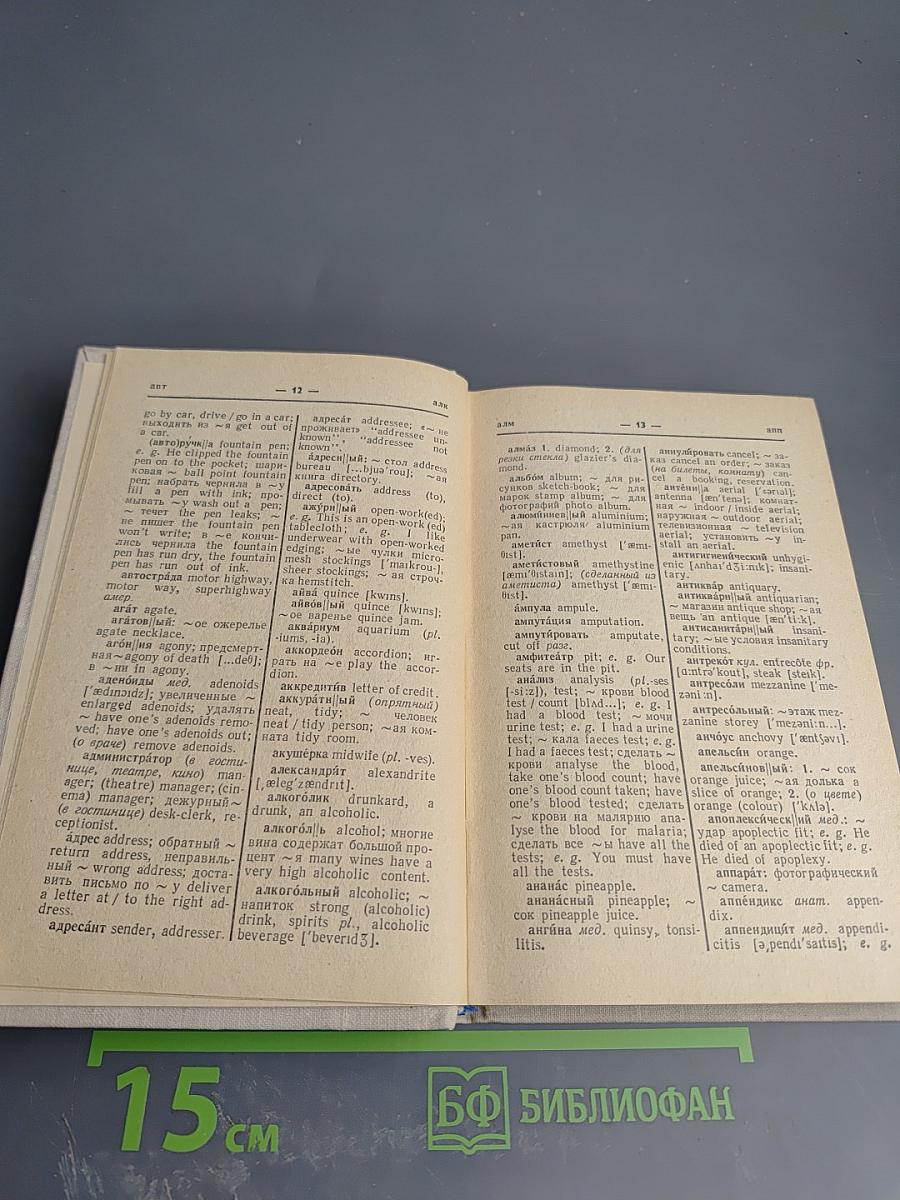 авт — 12 — алк
go by car, drive / go in a car;
выходить из ~я get out of
a car.
(авто)ру́чк||а fountain pen;
e. g. He clipped the fountain
pen on to the pocket; шари-
ковая ~ ball point fountain
pen; набрать чернила в ~у
fill a pen with ink; про-
мывать ~у wash out a pen;
~ течет the pen leaks; ~
не пишет the fountain pen
won't write; в ~е кончи-
лись чернила the fountain
pen has run dry, the fountain
pen has run out of ink.
автостра́да motor highway,
motor way, superhighway
амер.
ага́т agate.
ага́тов||ый: ~ое ожерелье
agate necklace.
аго́н||ия agony; предсмерт-
ная ~ agony of death [...deθ];
в ~ии in agony.
адено́иды мед. adenoids
['ædɪnɔɪdz]; увеличенные ~
enlarged adenoids; удалять
~ have one's adenoids remo-
ved; have one's adenoids out;
(о враче) remove adenoids.
администра́тор (в гости-
нице, театре, кино) man-
ager; (theatre) manager; (cin-
ema) manager; дежурный ~
(в гостинице) desk-clerk, re-
ceptionist.
а́дрес address; обратный ~
return address, неправиль-
ный ~ wrong address; доста-
вить письмо по ~у deliver
a letter at / to the right ad-
dress.
адреса́нт sender, addresser.
адреса́т addressee; «~ не
проживает» "addressee un-
known", "addressee not
known".
а́дресн||ый: ~ стол address
bureau [...bjuə'rou]; ~ая
книга directory.
адресова́ть address (to),
direct (to).
ажу́рн||ый open-work(ed);
e. g. This is an open-work(ed)
tablecloth; e. g. I like
underwear with open-worked
edging; ~ые чулки micro-
mesh stockings ['maɪkrou-],
sheer stockings; ~ая строч-
ка hemstitch.
айва́ quince [kwɪns].
айво́в||ый quince [kwɪns];
~ое варенье quince jam.
аква́риум aquarium (pl.
-iums, -ia).
аккордео́н accordion; иг-
рать на ~е play the accor-
dion.
аккредити́в letter of credit.
аккура́тн||ый (опрятный)
neat, tidy; ~ человек
neat / tidy person; ~ая ком-
ната tidy room.
акуше́рка midwife (pl. -ves).
александри́т alexandrite
[ˌælegˈzændrɪt].
алкого́лик drunkard, a
drunk, an alcoholic.
алкого́л||ь alcohol; многие
вина содержат большой про-
цент ~я many wines have a
very high alcoholic content.
алкого́льный alcoholic; ~
напиток strong (alcoholic)
drink, spirits pl., alcoholic
beverage ['bevərɪdʒ].
алм — 13 — апп
алма́з 1. diamond; 2. (для
резки стекла) glazier's dia-
mond.
альбо́м album; ~ для ри-
сунков sketch-book; ~ для
марок stamp album; ~ для
фотографий photo album.
алюми́ниев||ый aluminium;
~ая кастрюля aluminium
pan.
амети́ст amethyst ['æmɪ-
θɪst].
амети́стовый amethystine
[æmɪ'θɪstaɪn]; (сделанный из
аметиста) amethyst ['æmɪ-
θɪst].
а́мпула ampule.
ампута́ция amputation.
ампути́ровать amputate,
cut off разг.
амфитеа́тр pit; e. g. Our
seats are in the pit.
ана́лиз analysis (pl.-ses
[-si:z]), test; ~ крови blood
test / count [blʌd...]; e. g. I
had a blood test; ~ мочи
urine test; e. g. I had a urine
test; ~ кала faeces test; e. g.
I had a faeces test; сделать ~
крови analyse the blood,
take one's blood count; have
one's blood count taken; have
one's blood tested; сделать
~ крови на малярию ana-
lyse the blood for malaria;
сделать все ~ы have all the
tests; e. g. You must have
all the tests.
анана́с pineapple.
анана́сный pineapple; ~
сок pineapple juice.
анги́на мед. quinsy, tonsi-
litis.
аннули́ровать cancel; ~ за-
каз cancel an order; ~ заказ
(на билеты, комнату) can-
cel a booking, reservation.
анте́нн||а aerial ['ɛərɪəl];
antenna [æn'tenə]; комнат-
ная ~ indoor / inside aerial;
наружная ~ outdoor aerial;
телевизионная ~ television
aerial; установить ~у in-
stall an aerial.
антигигиени́ческий unhygi-
enic [ʌnhaɪ'dʒi:nɪk]; insani-
tary.
антиква́р antiquary.
антиква́рн||ый antiquarian;
~ магазин antique shop; ~ая
вещь an antique [æn'ti:k].
антисанита́рн||ый insani-
tary; ~ые условия insanitary
conditions.
антреко́т кул. entrecôte фр.
[ɑ:ntrə'kout], steak [steik].
антресо́ли mezzanine ['me-
zəni:n].
антресо́льный: ~ этаж mez-
zanine storey ['mezəni:n...].
анчо́ус anchovy ['æntʃəvɪ].
апельси́н orange.
апельси́нов||ый: 1. ~ сок
orange juice; ~ая долька a
slice of orange; 2. (о цвете)
orange (colour) ['kʌlə].
апоплекси́ческ||ий мед.: ~
удар apoplectic fit; e. g. He
died of an apoplectic fit; e. g.
He died of apoplexy.
аппара́т: фотографический
~ camera.
аппе́ндикс анат. appen-
dix.
аппендици́т мед. appendi-
citis [ə,pendɪ'saɪtɪs]; e. g.
15 см
БФ БИБЛИОФАН